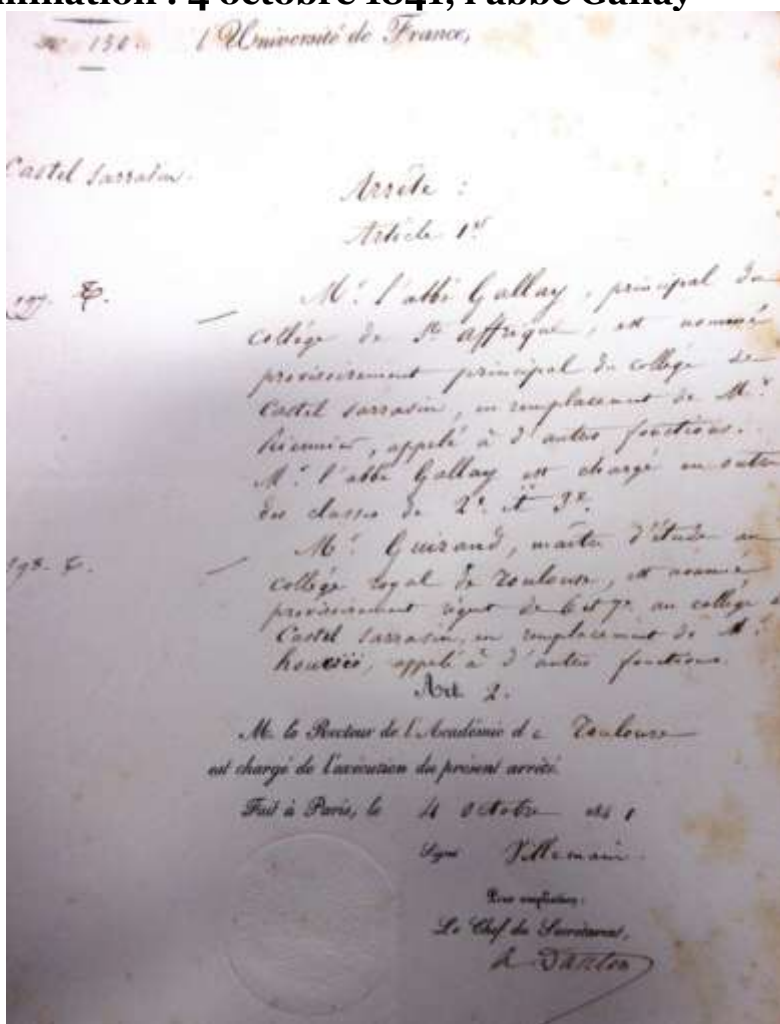 mination : 4 octobre 1841, l'abbé Gallay
N° 130. l'Université de France,
Castel Sarrasin.
Arrête :
Article 1er
M. l'abbé Gallay, principal du
collège de St Affrique, est nommé
provisoirement principal du collège de
Castel Sarrasin, en remplacement de M.
appelé à d'autres fonctions.
M. l'abbé Gallay est chargé en outre
des classes de 2e et 3e.
M. Guiraud, maître d'étude au
collège royal de Toulouse, est nommé
provisoirement régent de 6 et 7e au collège d
Castel Sarrasin, en remplacement de M.
appelé à d'autres fonctions.
Art 2.
M. le Recteur de l'Académie de Toulouse
est chargé de l'exécution du présent arrêté.
Fait à Paris, le 4 Octobre 1841
Signé Villemain.
Pour ampliation :
Le Chef du Secrétariat,
Danton